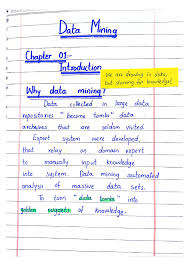 Data Mining
Chapter 01:-
Introduction
We are drowning in data,
but starving for knowledge!
Why data mining?
Data collected in large data
repositories "become tombs" data
archives that are seldom visited.
Expert system were developed,
that relay on domain expert
to manually input knowledge
into system. Data mining automated
analysis of massive data sets.
To turn "data tombs" into
golden nuggets of knowledge.